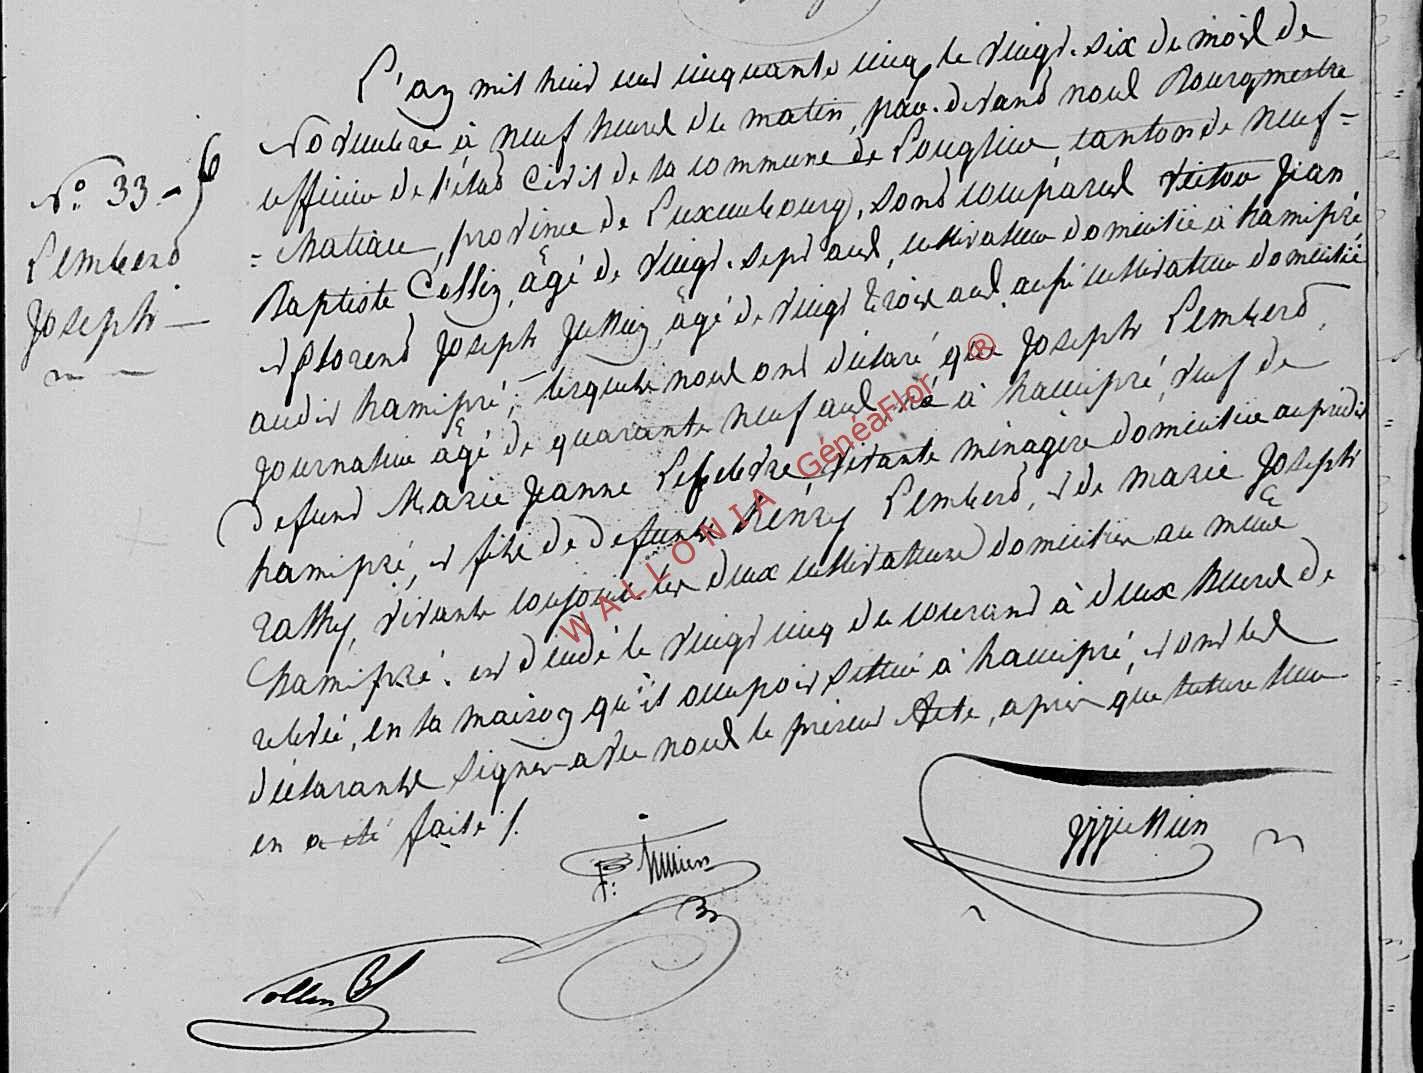 N.° 33.-
Lembero
Joseph
L'an mil huit cent cinquante cinq le vingt-six du mois de
Novembre à neuf heures du matin, par-devant nous Bourgmestre
officier de l'état civil de la commune de Longlier, canton de Neuf=
=chateau, province de Luxembourg, sont comparus Victor Jean
Baptiste Collin, âgé de vingt-sept ans, cultivateur domicilié à hamipré,
et florent Joseph Jullien, âgé de vingt trois ans aussi cultivateur domicilié
audit hamipré; lesquels nous ont déclaré que Joseph Lembero,
journalier âgé de quarante neuf ans né à hamipré, veuf de
defunt Marie Jeanne Lefebvre, vivante ménagère domiciliée au prédit
hamipré, et fils de defunts hénry Lembero, et de marie Joseph
vivante les deux cultivateurs domiciliés au même
hamipré. est décédé le vingt cinq du courant à deux heures de
relevée, en la maison qu'il occupoit située à hamipré, et ont les
déclarants signer avec nous le présent Acte, après que lecture leur
en a été faite /.
WALLONIA GénéaFlor ®
Collin